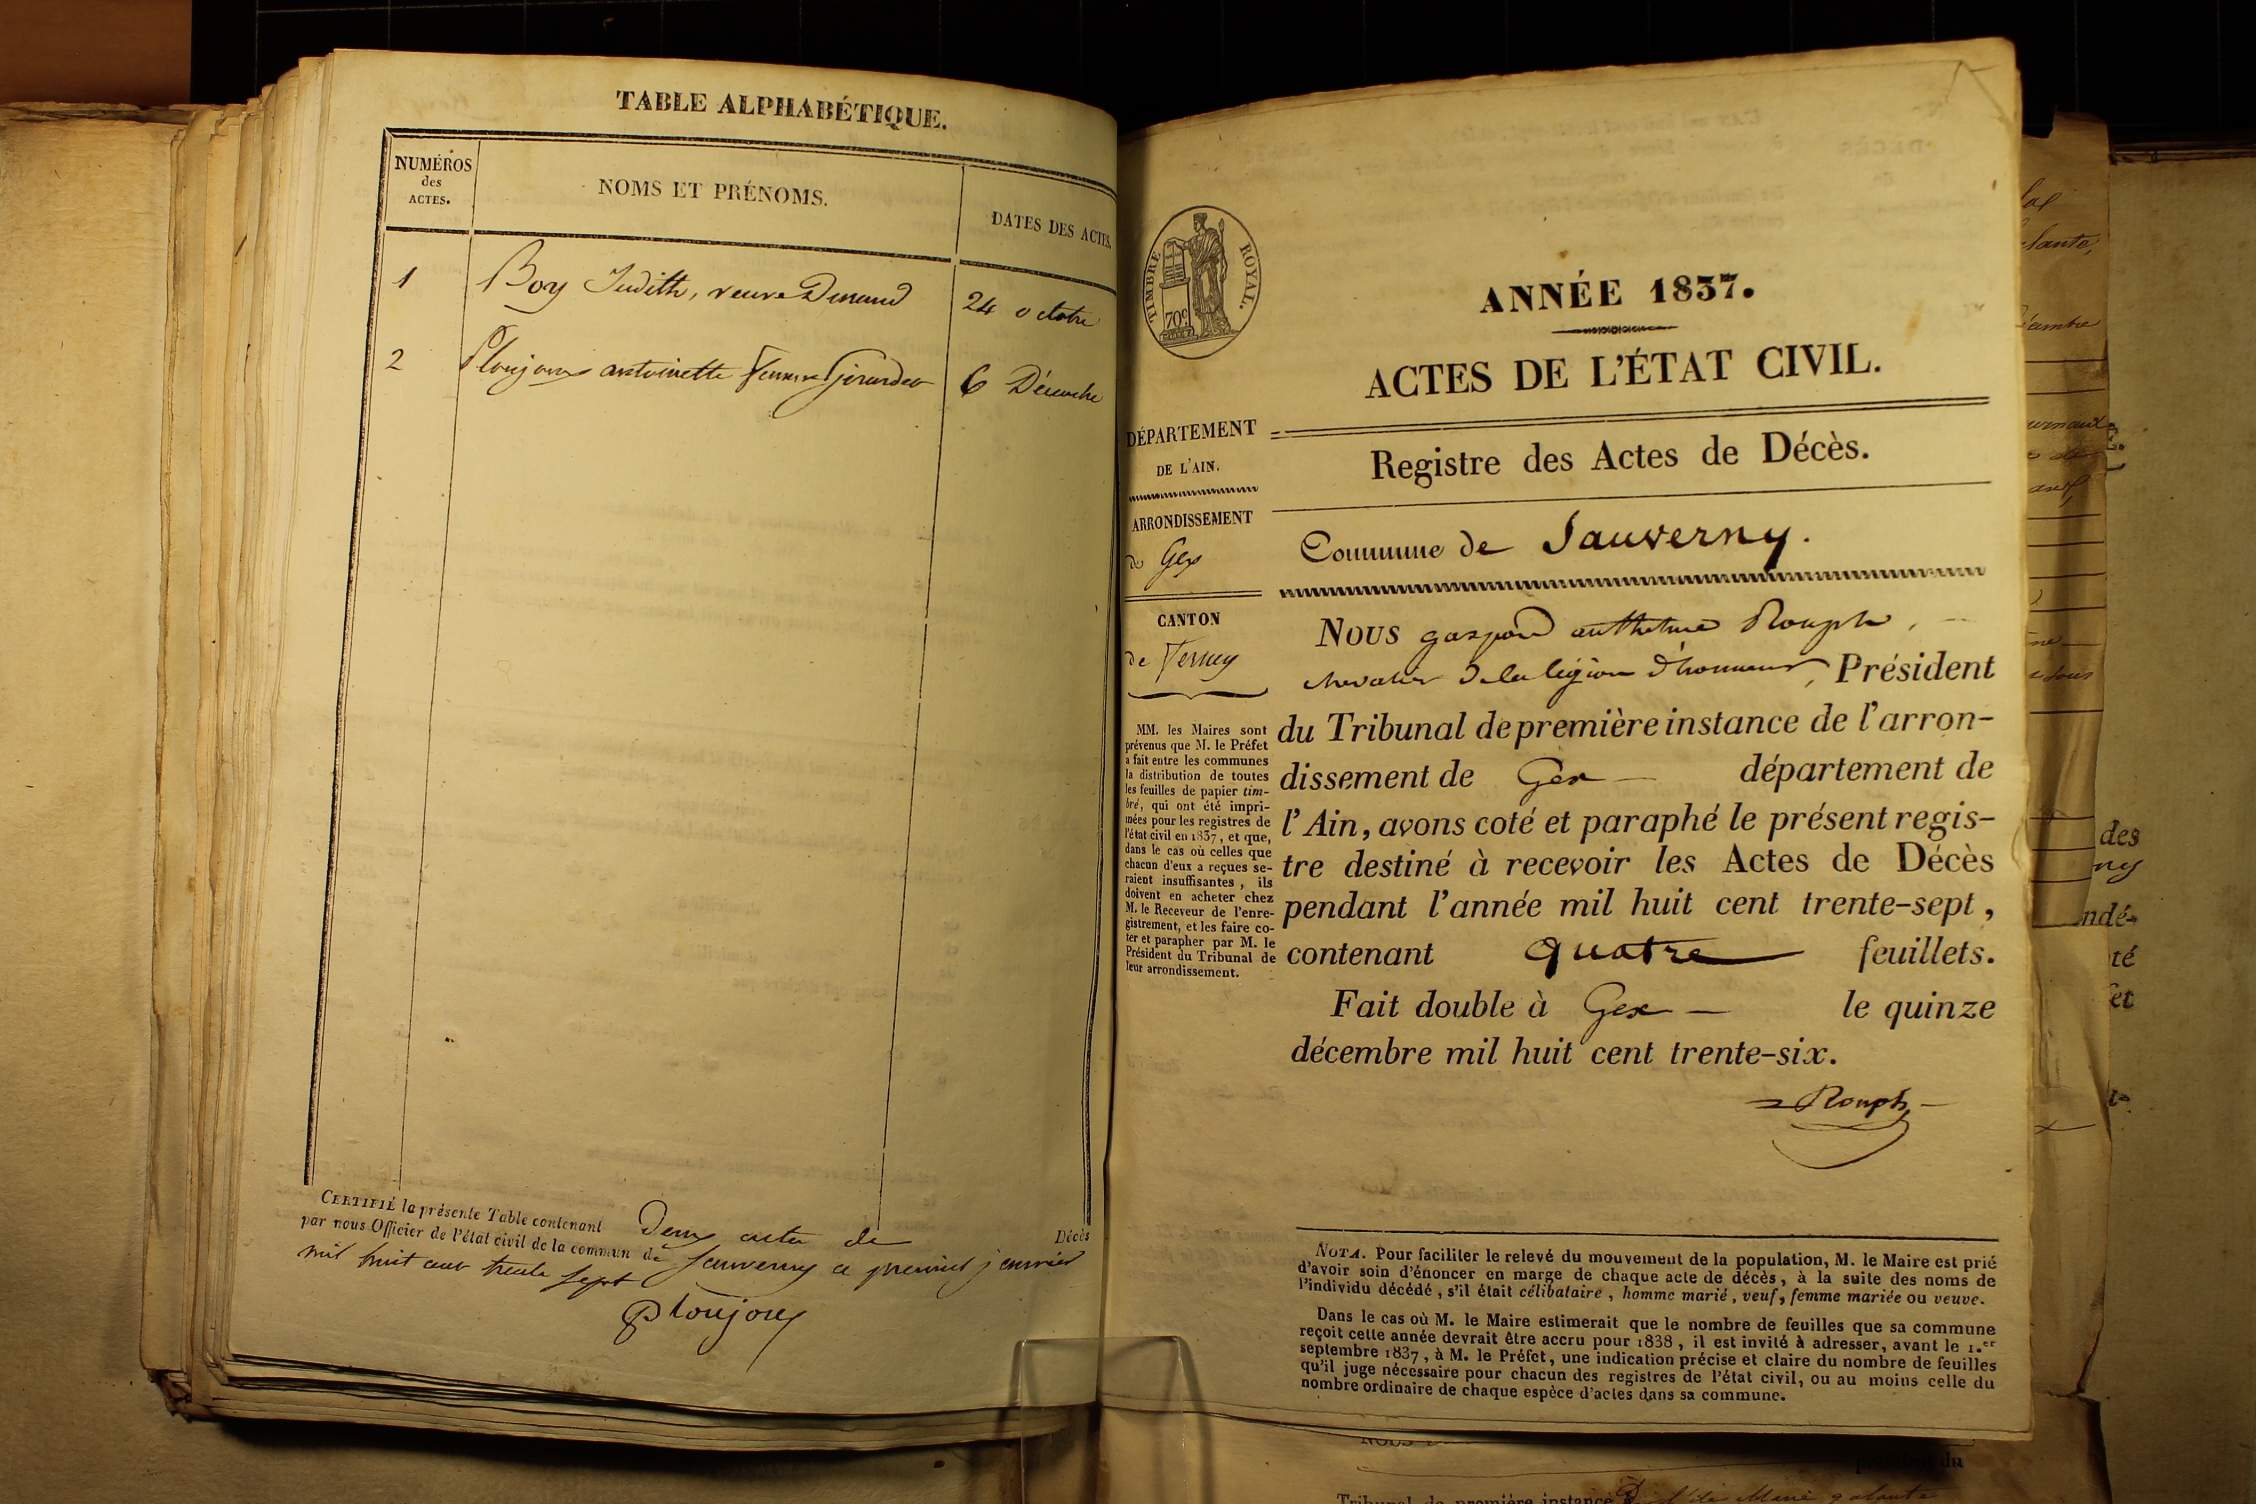 TABLE ALPHABÉTIQUE.
NUMÉROS
des
ACTES.
NOMS ET PRÉNOMS.
DATES DES ACTES.
1 Boy Judith, veuve Dunand 24 octobre
2 Ploujoux antoinette femme Girardet 6 Décembre
CERTIFIÉ la présente Table contenant Deux actes de Décès
par nous Officier de l'état civil de la commun de Sauverny ce premier janvier
mil huit cent trente sept
Ploujoux
TIMBRE ROYAL.
70c
ANNÉE 1837.
ACTES DE L'ÉTAT CIVIL.
DÉPARTEMENT
DE L'AIN.
ARRONDISSEMENT
de Gex
CANTON
de Ferney
MM. les Maires sont
prévenus que M. le Préfet
a fait entre les communes
la distribution de toutes
les feuilles de papier tim-
bré, qui ont été impri-
mées pour les registres de
l'état civil en 1837, et que,
dans le cas où celles que
chacun d'eux a reçues se-
raient insuffisantes, ils
doivent en acheter chez
M. le Receveur de l'enre-
gistrement, et les faire co-
ter et parapher par M. le
Président du Tribunal de
leur arrondissement.
Registre des Actes de Décès.
Commune de Sauverny.
Nous gaspard anthelme Rouph,
chevalier de la légion d'honneur, Président
du Tribunal de première instance de l'arron-
dissement de Gex département de
l'Ain, avons coté et paraphé le présent regis-
tre destiné à recevoir les Actes de Décès
pendant l'année mil huit cent trente-sept,
contenant quatre feuillets.
Fait double à Gex le quinze
décembre mil huit cent trente-six.
Rouph
NOTA. Pour faciliter le relevé du mouvement de la population, M. le Maire est prié
d'avoir soin d'énoncer en marge de chaque acte de décès, à la suite des noms de
l'individu décédé, s'il était célibataire, homme marié, veuf, femme mariée ou veuve.
Dans le cas où M. le Maire estimerait que le nombre de feuilles que sa commune
reçoit cette année devrait être accru pour 1838, il est invité à adresser, avant le 1.er
septembre 1837, à M. le Préfet, une indication précise et claire du nombre de feuilles
qu'il juge nécessaire pour chacun des registres de l'état civil, ou au moins celle du
nombre ordinaire de chaque espèce d'actes dans sa commune.